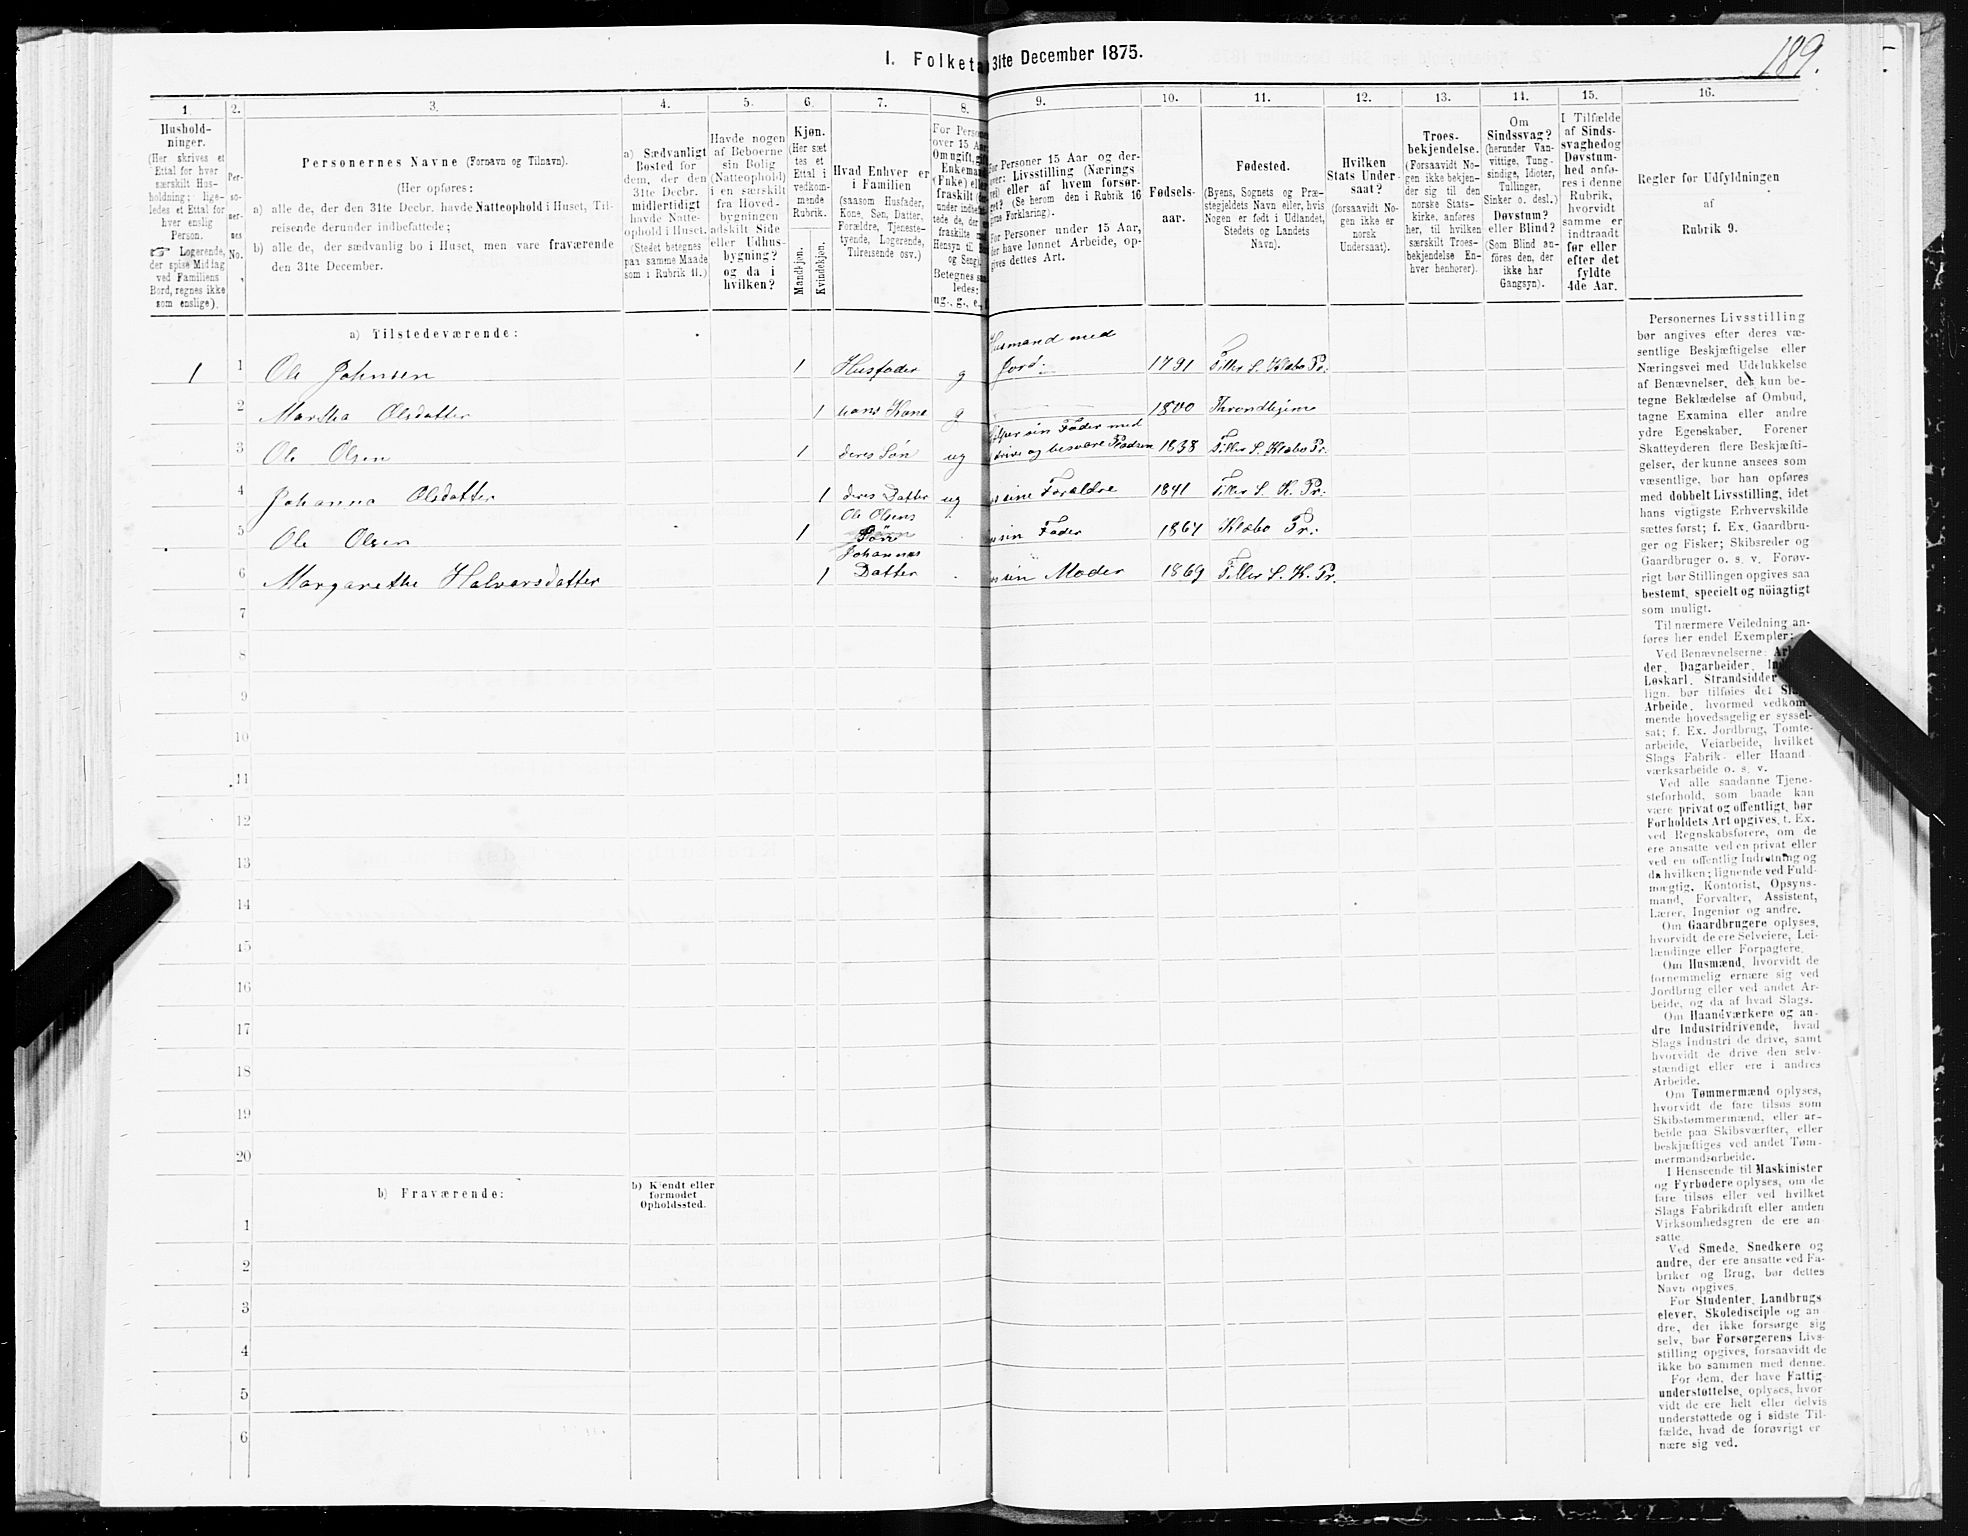 I. Folketa 31te December 1875.
189.
1.
2.
3.
4.
5.
6.
7.
8.
9.
10.
11.
12.
13.
14.
15.
16.
Hushold-
ninger.
(Her skrives et
Ettal for hver
særskilt Hus-
holdning; lige-
ledes et Ettal for
hver enslig
Person.
☞ Logerende,
der spise Middag
ved Familiens
Bord, regnes ikke
som enslige).
Per-
so-
ner-
nes
No.
Personernes Navne (Fornavn og Tilnavn).
(Her opføres:
a) alle de, der den 31te Decbr. havde Natteophold i Huset, Til-
reisende derunder indbefattede;
b) alle de, der sædvanlig bo i Huset, men vare fraværende
den 31te December.
a) Sædvanligt
Bosted for
dem, der den
31te Decbr.
midlertidigt
havde Natte-
ophold i Huset.
(Stedet betegnes
paa samme Maade
som i Rubrik 11.)
Havde nogen
af Beboerne
sin Bolig
(Natteophold)
i en særskilt
fra Hoved-
bygningen
adskilt Side
eller Udhus-
bygning?
og da i
hvilken?
Kjøn.
(Her sæt-
tes et
Ettal i
vedkom-
mende
Rubrik.
Mandkjøn.
Kvindekjøn.
Hvad Enhver er
i Familien
(saasom Husfader,
Kone, Søn, Datter,
Forældre, Tjeneste-
tyende, Logerende,
Tilreisende osv.)
For Persone
over 15 Aar
Om ugift, gift
Enkemand
(Enke) eller
fraskilt
under indbefat-
tede de, der
fraskilte med
Hensyn til Bo
og Seng).
Betegnes saa-
ledes:
ug., g., e., f
For Personer 15 Aar og der-
over: Livsstilling (Nærings
vei) eller af hvem forsør-
get? (Se herom den i Rubrik 16
givne Forklaring).
For Personer under 15 Aar,
der have lønnet Arbeide, op-
gives dettes Art.
Fødsels-
aar.
Fødested.
(Byens, Sognets og Præ-
stegjeldets Navn eller, hvis
Nogen er født i Udlandet,
Stedets og Landets
Navn).
Hvilken
Stats Under-
saat?
(forsaavidt No-
gen ikke er
norsk
Undersaat).
Troes-
bekjendelse.
(Forsaavidt No-
gen ikke bekjen-
der sig til den
norske Stats-
kirke, anføres
her, til hvilken
særskilt Troes-
bekjendelse En-
hver henhører).
Om
Sindssvag?
(herunder Van-
vittige, Tung-
sindige, Idioter,
Tullinger,
Sinker o. desl.)
Døvstum?
eller Blind?
(Som Blind an-
føres den, der
ikke har
Gangsyn).
I Tilfælde
af Sinds-
svaghed og
Døvstum-
hed anfø-
res i denne
Rubrik,
hvorvidt
samme er
indtraadt
før eller
efter det
fyldte
4de Aar.
Regler for Udfyldningen
af
Rubrik 9.
a) Tilstedeværende:
1 1 Ole Johnsen 1 Husfader g Husmand med Jord. 1791 Tiller S. Klæbo Pr.
2 Martha Olsdatter 1 hans Kone g 1800 Throndhjem
3 Ole Olsen 1 deres Søn ug sin Fader med drive og besvare Pladsen 1838 Tiller S. Klæbo Pr.
4 Johanna Olsdatter 1 deres Datter ug sine Forældre 1841 Tiller S. K. Pr.
5 Ole Olsen 1 Ole Olsens Søn sin Fader 1864 Klæbo Pr.
6 Margarethe Halvorsdatter 1 Johannas Datter sin Moder 1869 Tiller S. K. Pr.
7
8
9
10
11
12
13
14
15
16
17
18
19
20
b) Fraværende:
b) Kjendt eller
formodet
Opholdssted.
1
2
3
4
5
6
Personernes Livsstilling
bør angives efter deres væ-
sentlige Beskjæftigelse eller
Næringsvei med Udelukkelse
af Benævnelser, der kun be-
tegne Beklædelse af Ombud,
tagne Examina eller andre
ydre Egenskaber. Forener
Skatteyderen flere Beskjæfti-
gelser, der kunne ansees som
væsentlige, bør han opføres
med dobbelt Livsstilling, idet
hans vigtigste Erhvervskilde
sættes først; f. Ex. Gaardbru-
ger og Fisker; Skibsreder og
Gaardbruger o. s. v. Forøv-
rigt bør Stillingen opgives saa
bestemt, specielt og nöiagtigt
som muligt.
Til nærmere Veiledning an-
føres her endel Exempler:
Ved Benævnelserne: Ar
der, Dagarbeider, In
Løskarl, Strandsidder
lign. bør tilføies det Sla
Arbeide, hvormed vedkom-
mende hovedsagelig er syssel-
sat; f. Ex. Jordbrug, Tomte-
arbeide, Veiarbeide, hvilket
Slags Fabrik- eller Haand-
værksarbeide o. s. v.
Ved alle saadanne Tjene-
steforhold, som baade kan
være privat og offentligt, bør
Forholdets Art opgives, f. Ex.
ved Regnskabsførere, om de
ere ansatte ved en privat eller
ved en offentlig Indretning og
da hvilken; lignende ved Fuld-
mægtig, Kontorist, Opsyns-
mand, Forvalter, Assistent,
Lærer, Ingeniør og andre.
Om Gaardbrugere oplyses,
hvorvidt de ere Selveiere, Lei-
lændinge eller Forpagtere.
Om Husmænd, hvorvidt de
fornemmelig ernære sig ved
Jordbrug eller ved andet Ar-
beide, og da af hvad Slags.
Om Haandværkere og an-
dre Industridrivende, hvad
Slags Industri de drive, samt
hvorvidt de drive den selv-
stændigt eller ere i andres
Arbeide.
Om Tømmermænd oplyses,
hvorvidt de fare tilsøs som
Skibstømmermænd, eller ar-
beide paa Skibsværfter, eller
beskjæftiges ved andet Tøm-
mermandsarbeide.
I Henseende til Maskinister
og Fyrbødere oplyses, om de
fare tilsøs eller ved hvilket
Slags Fabrikdrift eller anden
Virksomhedsgren de ere an-
satte.
Ved Smede, Snedkere og
andre, der ere ansatte ved Fa-
briker og Brug, bør dettes
Navn opgives.
For Studenter, Landbrugs-
elever, Skoledisciple og an-
dre, der ikke forsørge sig
selv, bør Forsørgerens Livs-
stilling opgives, forsaavidt de
ikke bo sammen med denne.
For dem, der have Fattig-
understøttelse, oplyses, hvor-
vidt de ere helt eller delvis
understøttede og i sidste Til-
fælde, hvad de forøvrigt er-
nære sig ved.